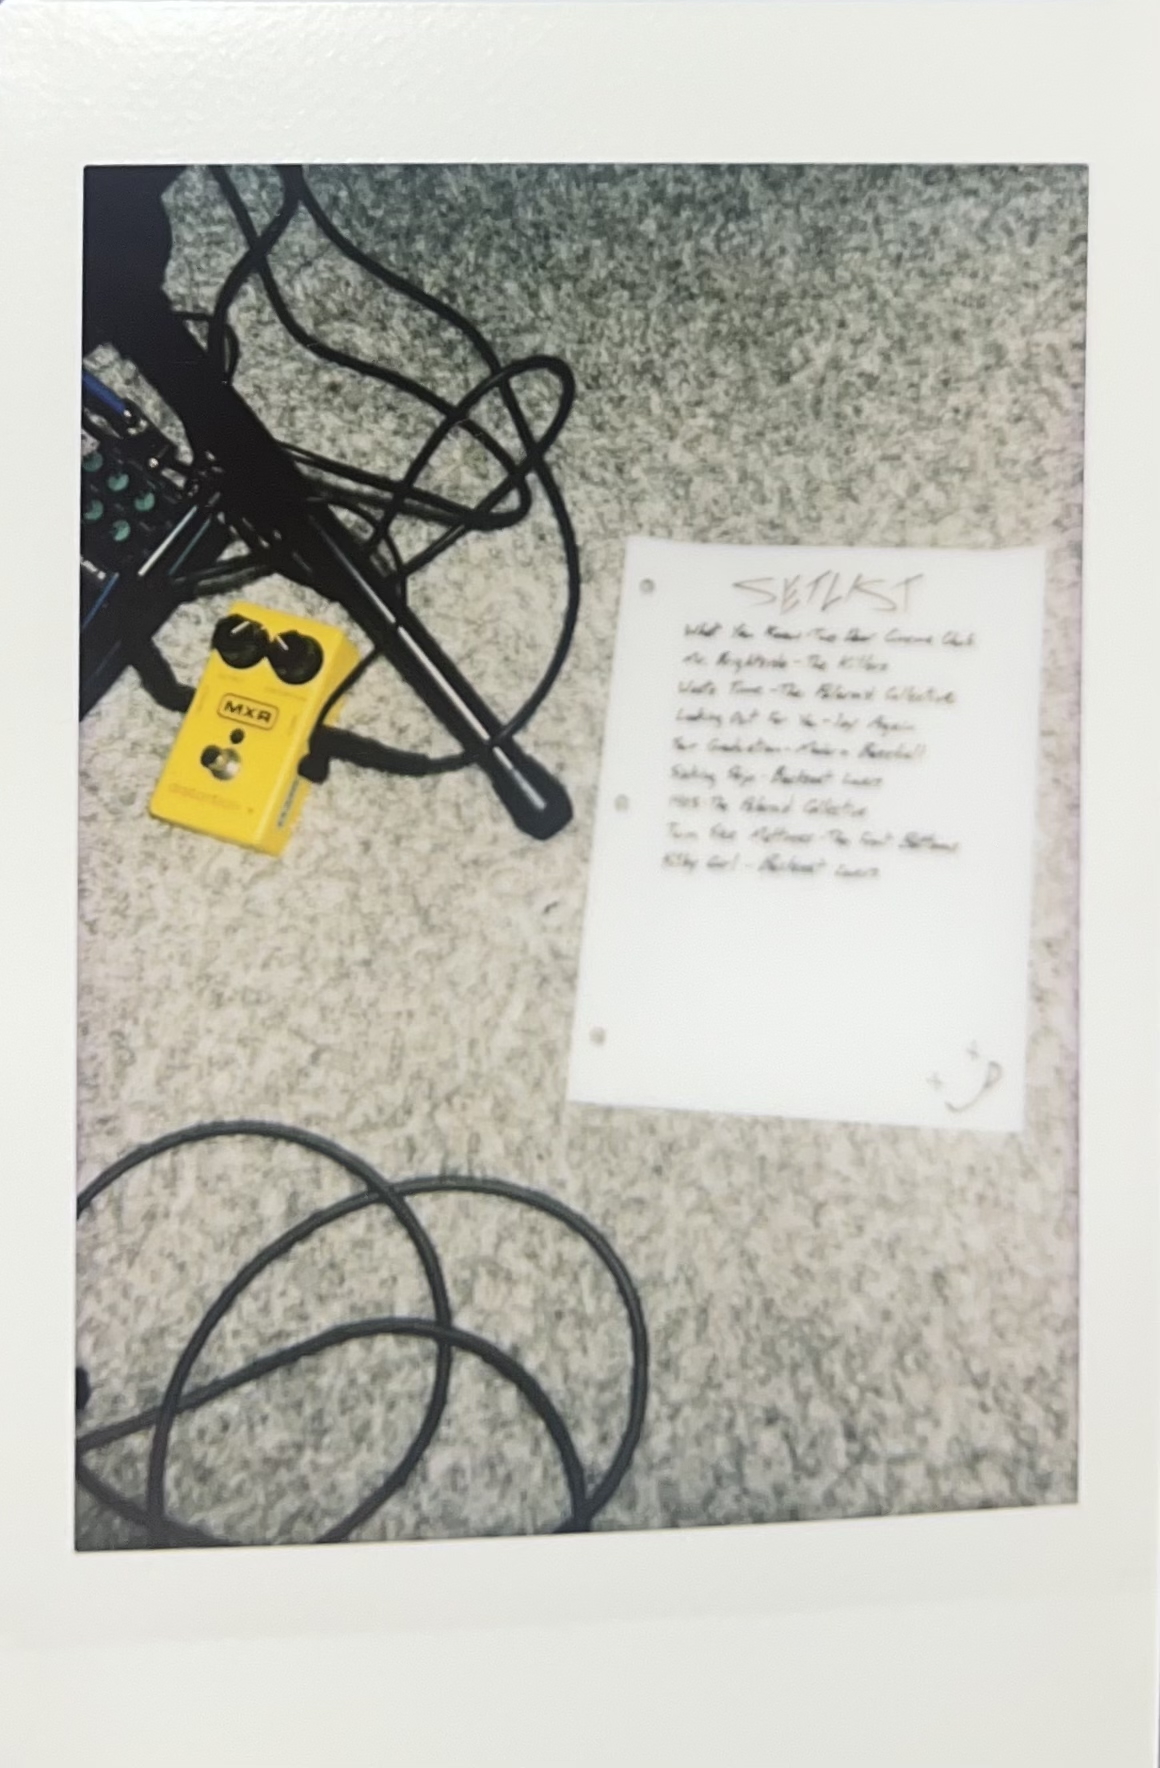 MXR
distortion +
SETLIST
What You Know - Two Door Cinema Club
Mr. Brightside - The Killers
Waste Time - The Polaroid Collective
Looking Out For You - Joy Again
Your Graduation - Modern Baseball
Sinking Ship - Backseat Lovers
The Polaroid Collective
Twin Size Mattress - The Front Bottoms
Kilby Girl - Backseat Lovers